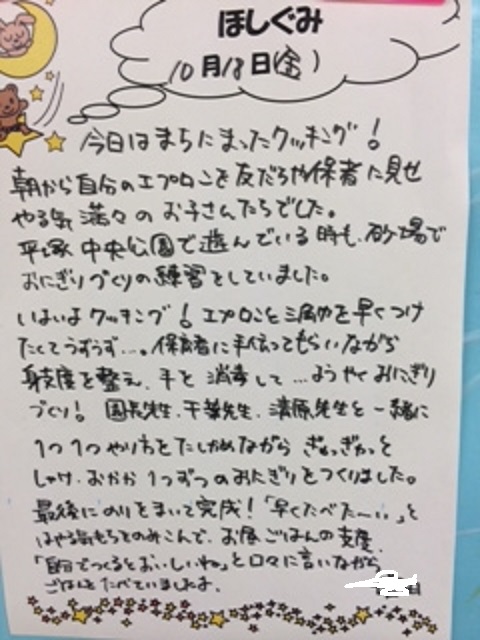 ほしぐみ
10月18日(金)
今日はまちにまったクッキング!
朝から自分のエプロンを友だちや保育者に見せ
やる気満々のお子さんたちでした。
平塚中央公園で遊んでいる時も、砂場で
おにぎりづくりの練習をしていました。
いよいよクッキング!エプロンと三角巾を早くつけ
たくてうずうず…。保育者に手伝ってもらいながら
身支度を整え、手を消毒して…ようやくおにぎり
づくり!園長先生、千華先生、清原先生と一緒に
1つ1つやり方をたしかめながらぎゅっぎゅっと
しゃけ、おかか1つずつのおにぎりをつくりました。
最後にのりをまいて完成!「早くたべた〜い」と
はやる気もちをのみこんで、お昼ごはんの支度。
「自分でつくるとおいしいね」と口々に言いながら
ごはんをたべていましたよ。